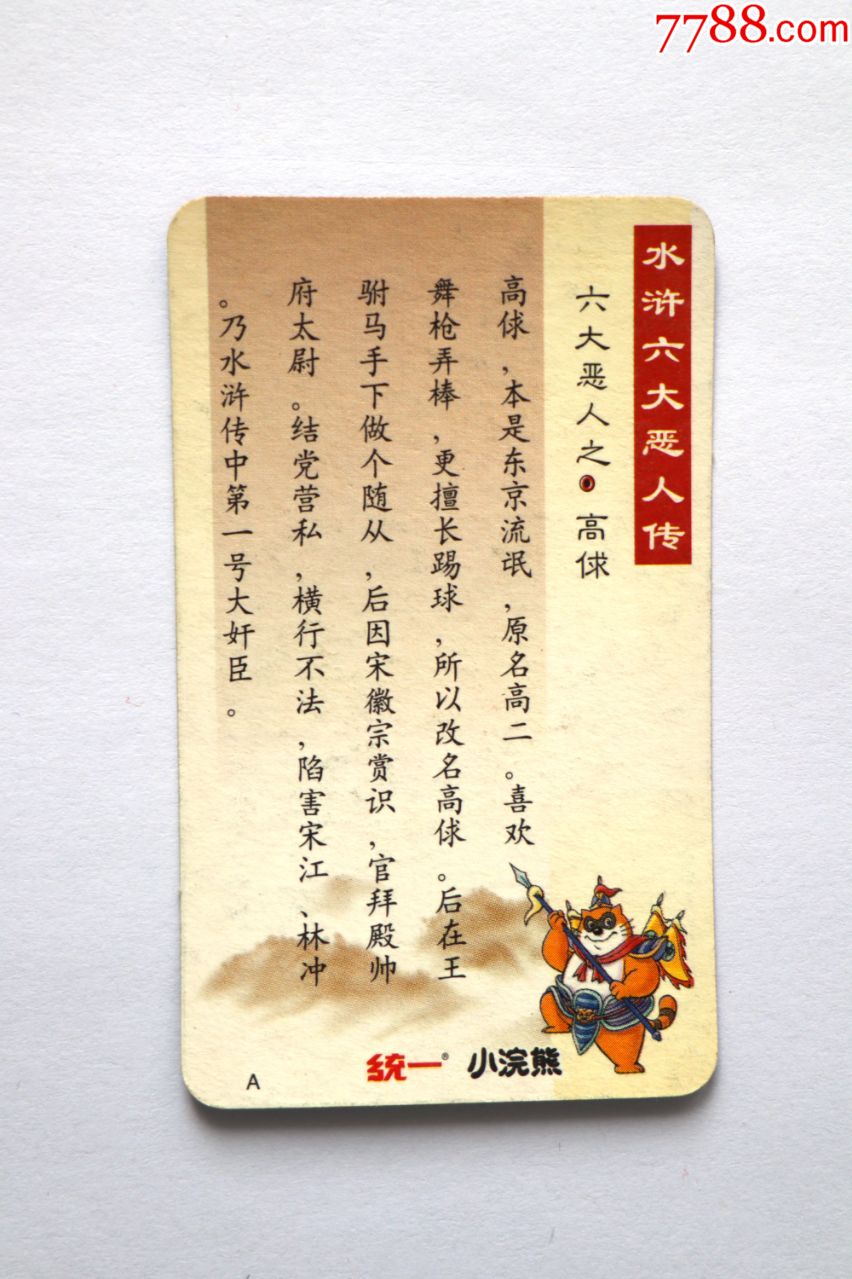 7788.com
水浒六大恶人传
六大恶人之 高俅
高俅，本是东京流氓，原名高二。喜欢
舞枪弄棒，更擅长踢球，所以改名高俅。后在王
驸马手下做个随从，后因宋徽宗赏识，官拜殿帅
府太尉。结党营私，横行不法，陷害宋江、林冲
。乃水浒传中第一号大奸臣。
统一® 小浣熊
A